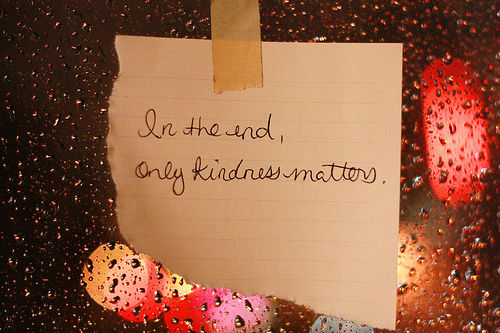 In the end,
only kindness matters.